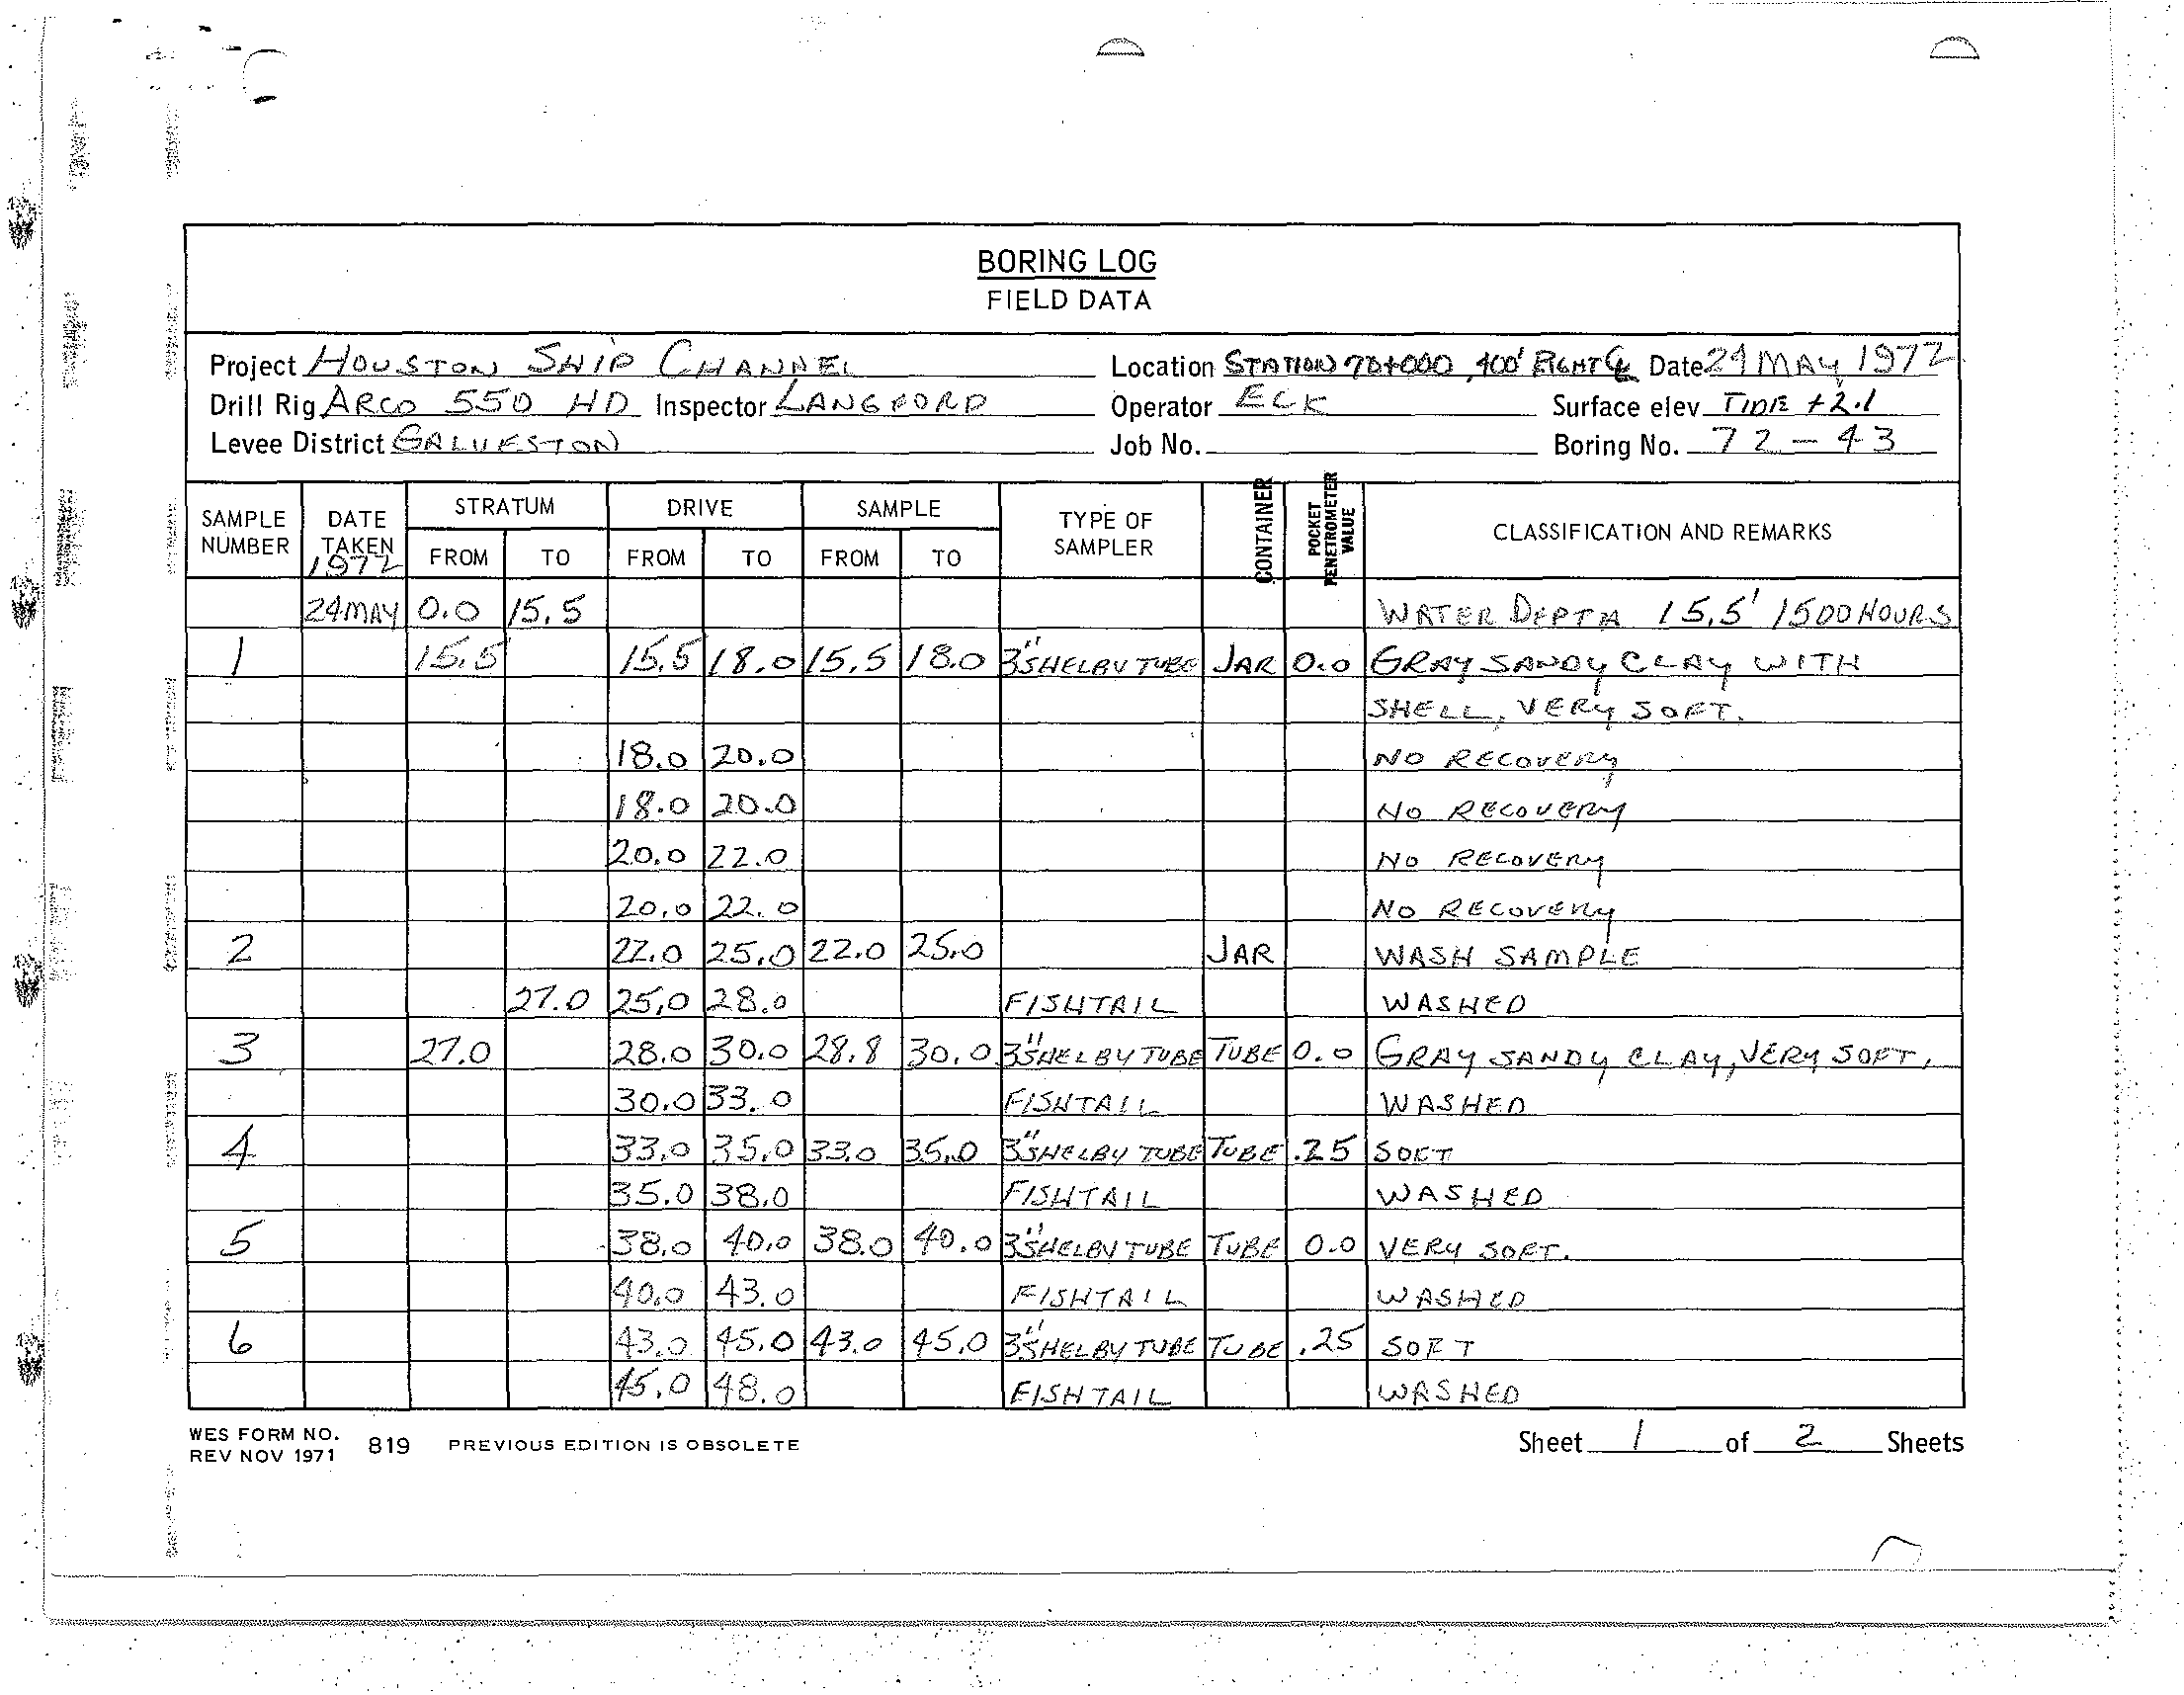 BORING LOG
FIELD DATA
Project HOUSTON SHIP CHANNEL Location STATION 78+000, 400' RIGHT ℄ Date 24 MAY 1972
Drill Rig ARCO 550 HD Inspector LANGFORD Operator ECK Surface elev TIDE +2.1
Levee District GALVESTON Job No. Boring No. 72-43
SAMPLE NUMBER DATE TAKEN 1972 STRATUM FROM TO DRIVE FROM TO SAMPLE FROM TO TYPE OF SAMPLER CONTAINER POCKET PENETROMETER VALUE CLASSIFICATION AND REMARKS
24 MAY 0.0 15.5 WATER DEPTH 15.5' 1500 HOURS
1 15.5 15.5 18.0 15.5 18.0 3" SHELBY TUBE JAR 0.0 GRAY SANDY CLAY WITH
SHELL, VERY SOFT.
18.0 20.0 NO RECOVERY
18.0 20.0 NO RECOVERY
20.0 22.0 NO RECOVERY
20.0 22.0 NO RECOVERY
2 22.0 25.0 22.0 25.0 JAR WASH SAMPLE
27.0 25.0 28.0 FISHTAIL WASHED
3 27.0 28.0 30.0 28.8 30.0 3" SHELBY TUBE TUBE 0.0 GRAY SANDY CLAY, VERY SOFT,
30.0 33.0 FISHTAIL WASHED
4 33.0 35.0 33.0 35.0 3" SHELBY TUBE TUBE .25 SOFT
35.0 38.0 FISHTAIL WASHED
5 38.0 40.0 38.0 40.0 3" SHELBY TUBE TUBE 0.0 VERY SOFT.
40.0 43.0 FISHTAIL WASHED
6 43.0 45.0 43.0 45.0 3" SHELBY TUBE TUBE .25 SOFT
45.0 48.0 FISHTAIL WASHED
WES FORM NO. 819 PREVIOUS EDITION IS OBSOLETE Sheet 1 of 2 Sheets
REV NOV 1971